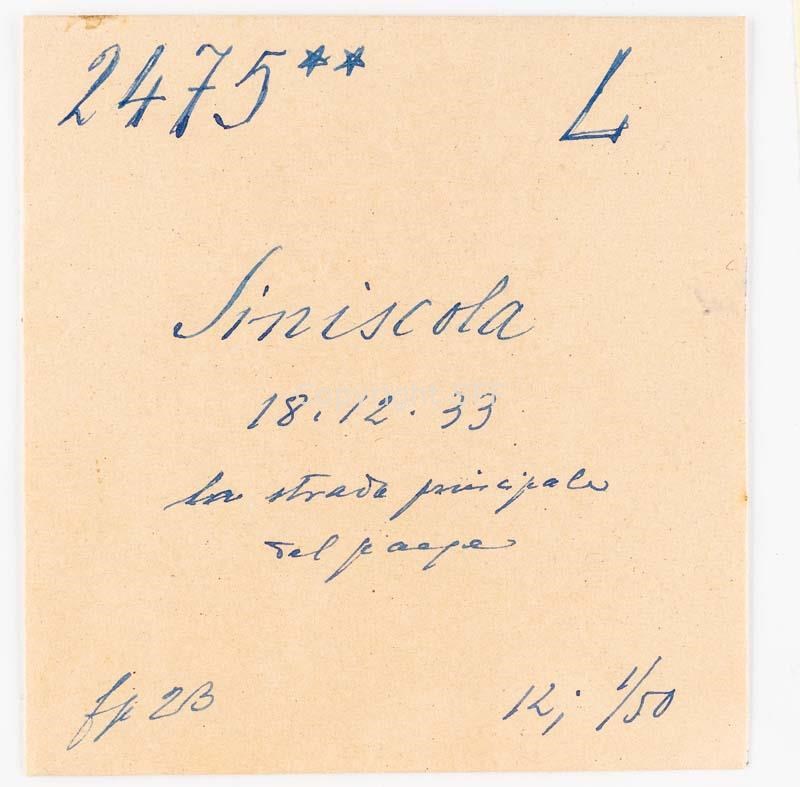 2475** L
Siniscola
18.12.33
la strada principale
del paese
fp 2B 12; 1/50